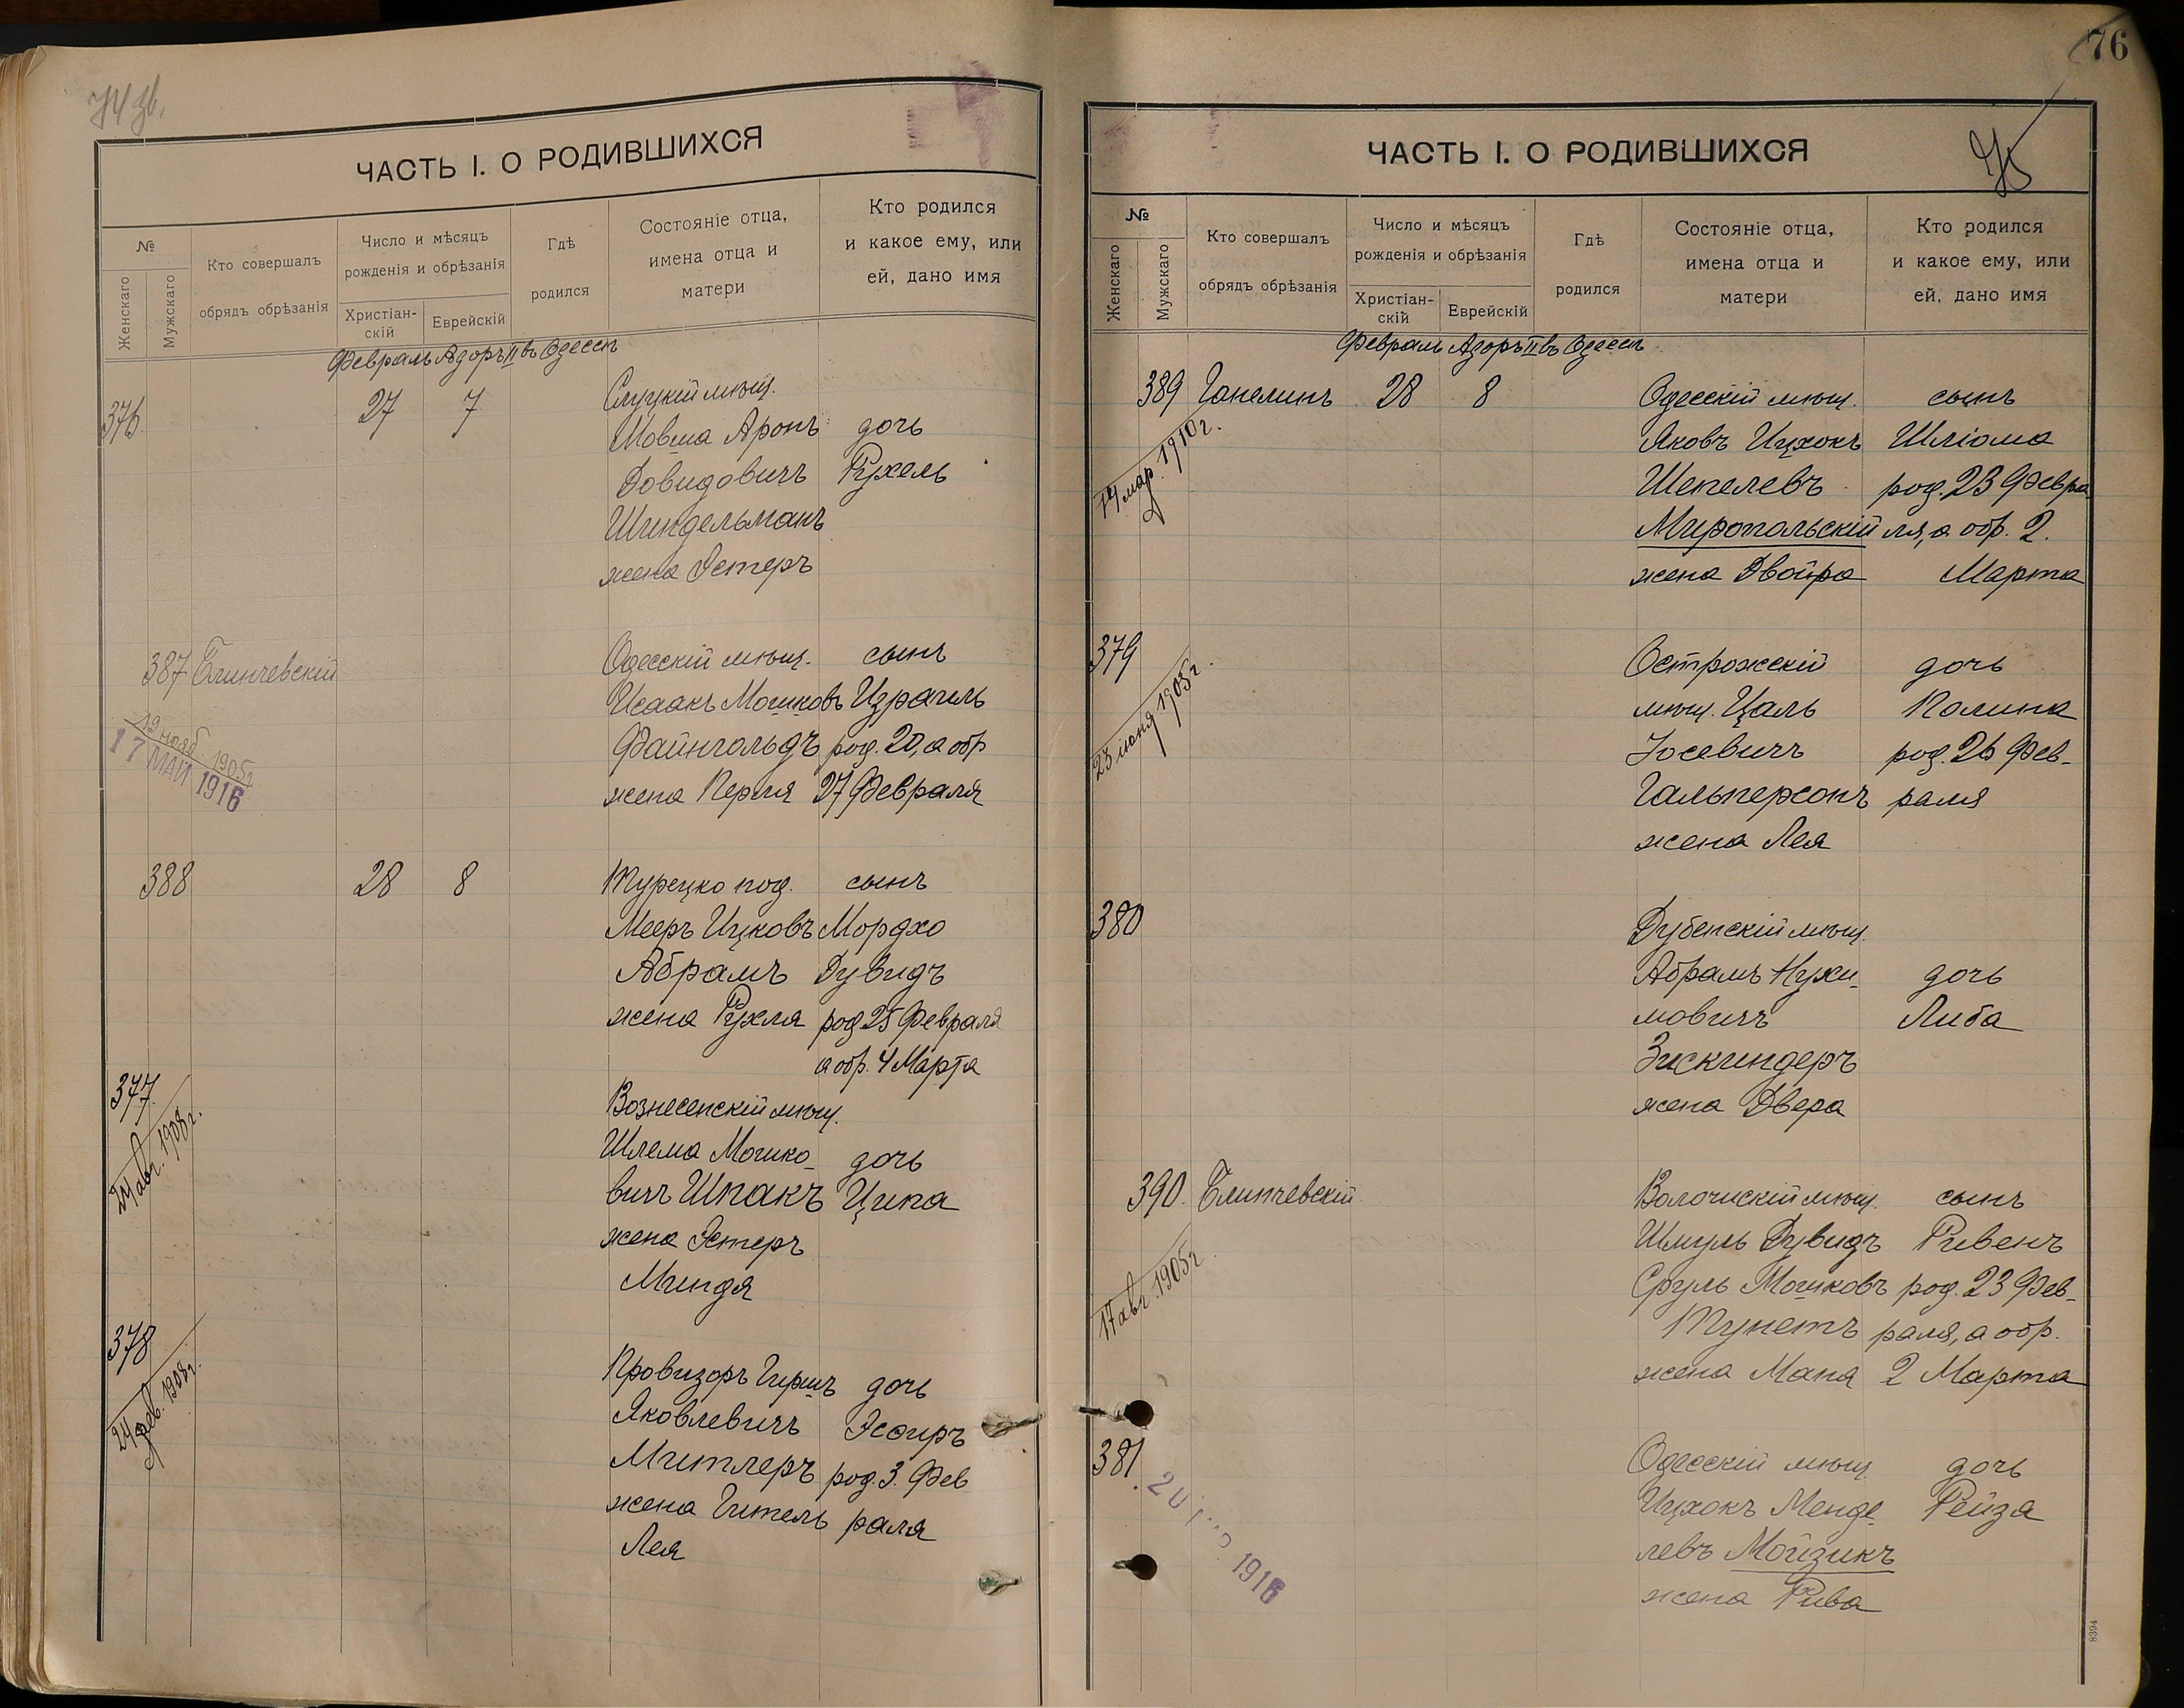 74 зв.
ЧАСТЬ I. О РОДИВШИХСЯ
№
Женскаго
Мужскаго
Кто совершалъ
обрядъ обрѣзанія
Число и мѣсяцъ
рожденія и обрѣзанія
Христіан-
скій
Еврейскій
Гдѣ
родился
Состояніе отца,
имена отца и
матери
Кто родился
и какое ему, или
ей, дано имя
Февраль Адоръ II въ Одессѣ
376. 27 7 Слуцкій мѣщ.
Шовша Аронъ дочь
Довидовичъ Рухель
Шиндельманъ
жена Эстеръ
387 Блинчевскій Одесскій мѣщ. сынъ
Исаакъ Мошковъ Израиль
19 нояб. 1905 г.
17 МАЙ 1916
Файнгольдъ род. 20, а обр
жена Перля 27 Февраля
388 28 8 Турецко под. сынъ
Мееръ Ицковъ Мордхо
Абрамъ Дувидъ
жена Рухля род 25 Февраля
а обр. 4 Марта
377.
24 авг. 1908 г.
Вознесенскій мѣщ.
Шлема Мошко- дочь
вичъ Шпакъ Ципа
жена Эстеръ
Миндя
378
24 фев. 1908 г.
Провизоръ Гиршъ дочь
Яковлевичъ Эсѳиръ
Митлеръ род. 3. Фев
жена Гитель раля
Лея
76
75
ЧАСТЬ I. О РОДИВШИХСЯ
№
Женскаго
Мужскаго
Кто совершалъ
обрядъ обрѣзанія
Число и мѣсяцъ
рожденія и обрѣзанія
Христіан-
скій
Еврейскій
Гдѣ
родился
Состояніе отца,
имена отца и
матери
Кто родился
и какое ему, или
ей, дано имя
Февраль Адоръ II въ Одессѣ
389 Ганелинъ 28 8 Одесскій мѣщ. сынъ
14 мар. 1910 г.
Яковъ Ицхокъ Шліома
Шепелевъ род. 23 Февра
Миропольскій ля, а обр. 2.
жена Двойра Марта
379
23 іюня 1905 г.
Острожскій дочь
мѣщ. Цаль Полина
Іосевичъ род. 26 Фев-
Гальперсонъ раля
жена Лея
380 Дубенскій мѣщ.
Абрамъ Нухи- дочь
мовичъ Либа
Зискиндеръ
жена Двера
390. Блинчевскій Волочискій мѣщ. сынъ
17 авг. 1905 г
Шмуль Дувидъ Рувенъ
Сруль Мошковъ род. 23 Фев-
Тунетъ раля, а обр.
жена Мапя 2 Марта
381. Одесскій мѣщ. дочь
1916
Ицхокъ Менде- Рейза
левъ Мойзикъ
жена Рива
8394